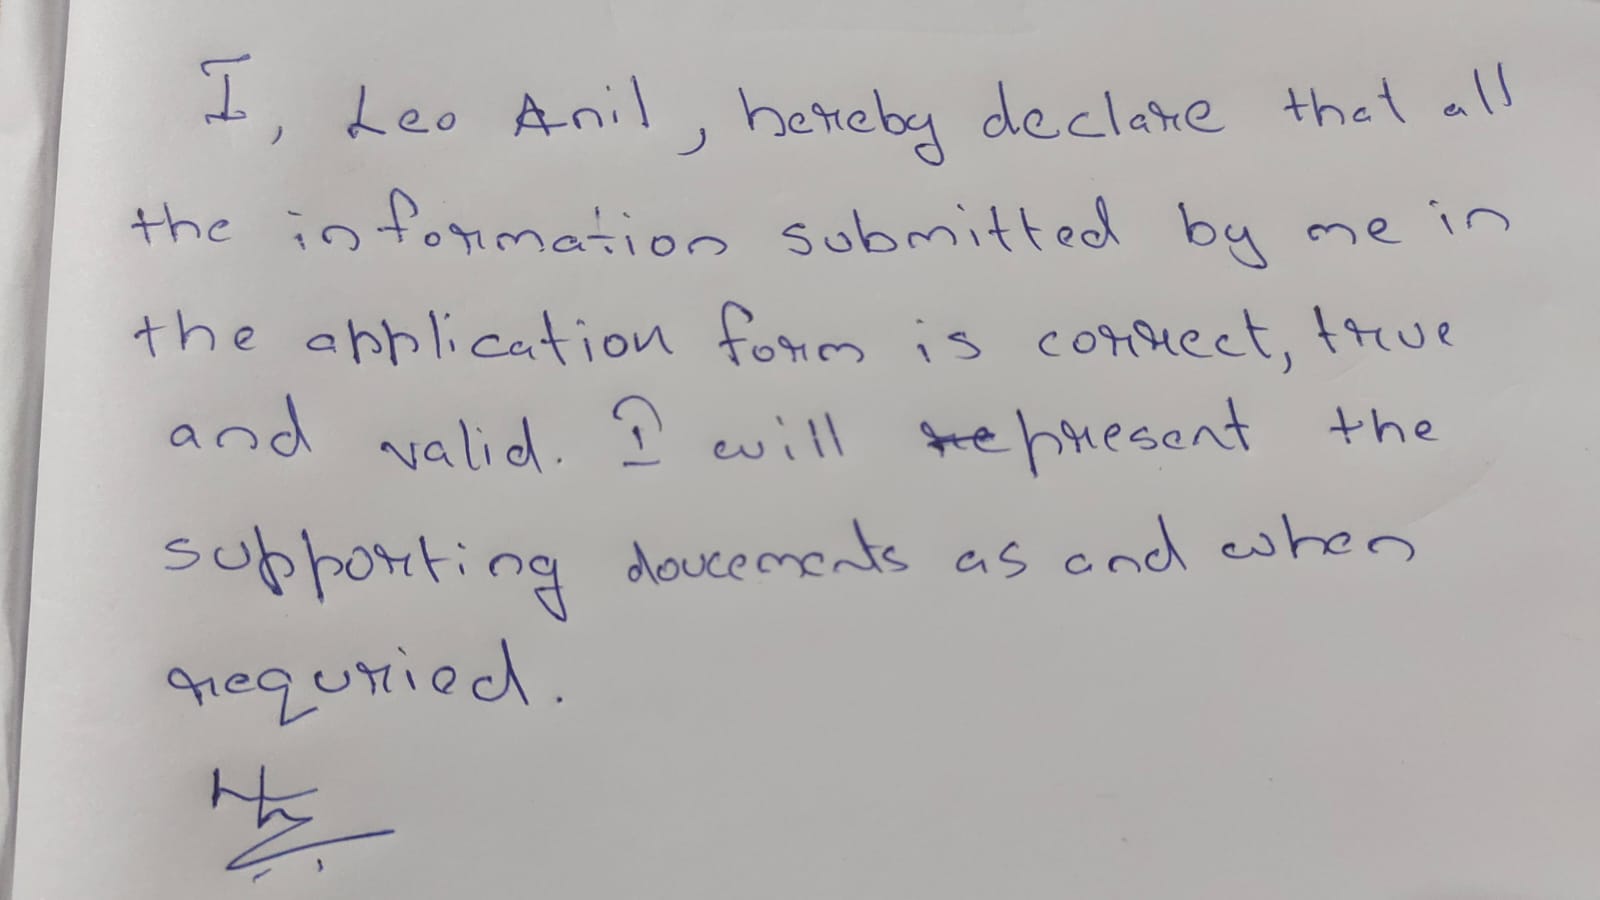 I, Leo Anil, hereby declare that all
the information submitted by me in
the application form is correct, true
and valid. I will present the
supporting doucements as and when
requried.